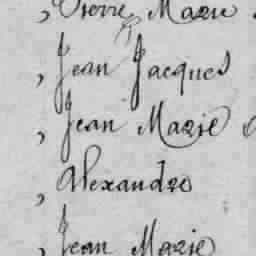 , Pierre Marie
, Jean Jacques
, Jean Marie
, Alexandre
, Jean Marie